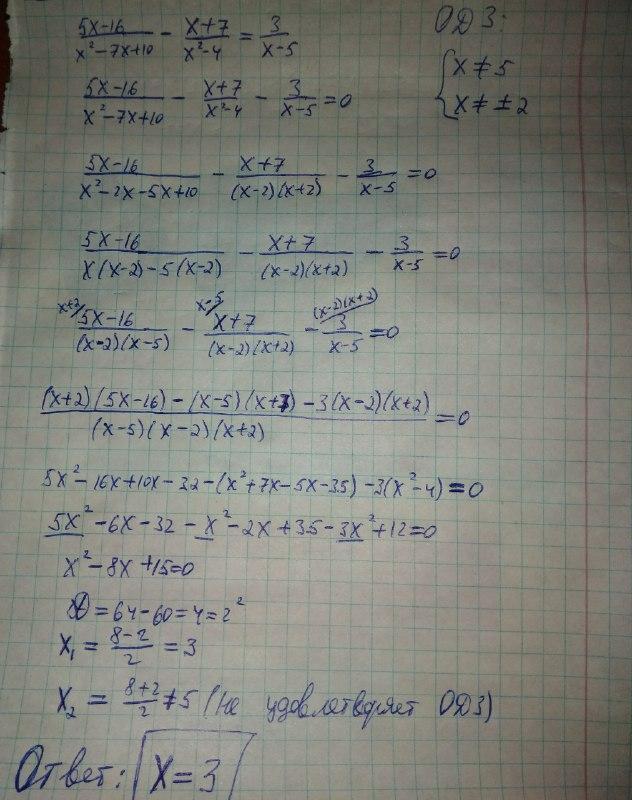 (5x-16)/(x²-7x+10) - (x+7)/(x²-4) = 3/(x-5)
ОДЗ:
{x ≠ 5
x ≠ ±2
(5x-16)/(x²-7x+10) - (x+7)/(x²-4) - 3/(x-5) = 0
(5x-16)/(x²-2x-5x+10) - (x+7)/((x-2)(x+2)) - 3/(x-5) = 0
(5x-16)/(x(x-2)-5(x-2)) - (x+7)/((x-2)(x+2)) - 3/(x-5) = 0
x+2/ (5x-16)/((x-2)(x-5)) - x-5/ (x+7)/((x-2)(x+2)) - (x-2)(x+2)/ 3/(x-5) = 0
((x+2)(5x-16) - (x-5)(x+7) - 3(x-2)(x+2))/((x-5)(x-2)(x+2)) = 0
5x²-16x+10x-32-(x²+7x-5x-35)-3(x²-4)=0
5x²-6x-32-x²-2x+35-3x²+12=0
x²-8x+15=0
D=64-60=4=2²
x₁ = (8-2)/2 = 3
x₂ = (8+2)/2 ≠ 5 (не удовлетворяет ОДЗ)
Ответ: x=3